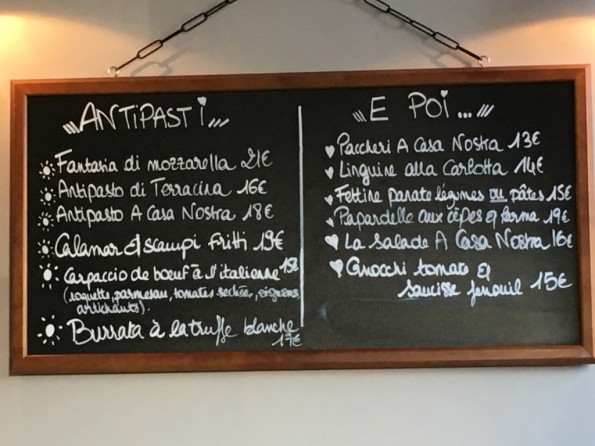 ANTIPASTI...
Fantasia di mozzarella 21€
Antipasto di Terracina 16€
Antipasto A Casa Nostra 18€
Calamar et scampi Fritti 19€
Carpaccio de bœuf à l'italienne 15€
(roquette, parmesan, tomates sechées, oignons,
artichauts).
Burrata à la truffe blanche
17€
E POI...
Paccheri A Casa Nostra 13€
Linguine alla Carlotta 14€
Fettine panate légumes ou pâtes 15€
Papardelle aux cèpes et parma 19€
La salade A Casa Nostra 16€
Gnocchi tomate et
saucisse fenouil 15€